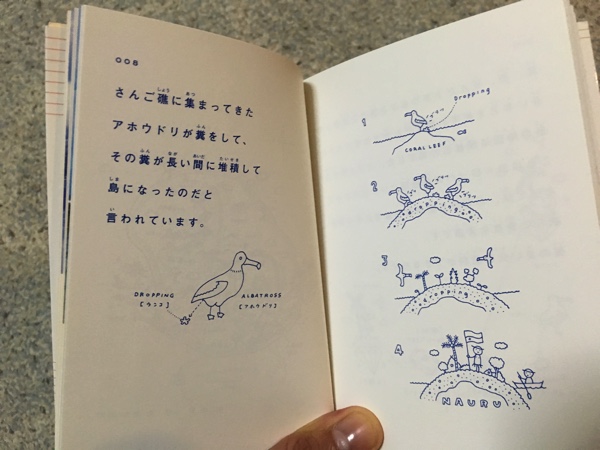 008
さんご礁に集まってきた
アホウドリが糞をして、
その糞が長い間に堆積して
島になったのだと
言われています。
DROPPING
[ウンコ]
ALBATROSS
[アホウドリ]
1
Dropping
CORAL LEEF
2
dropping
3
dropping
4
NAURU